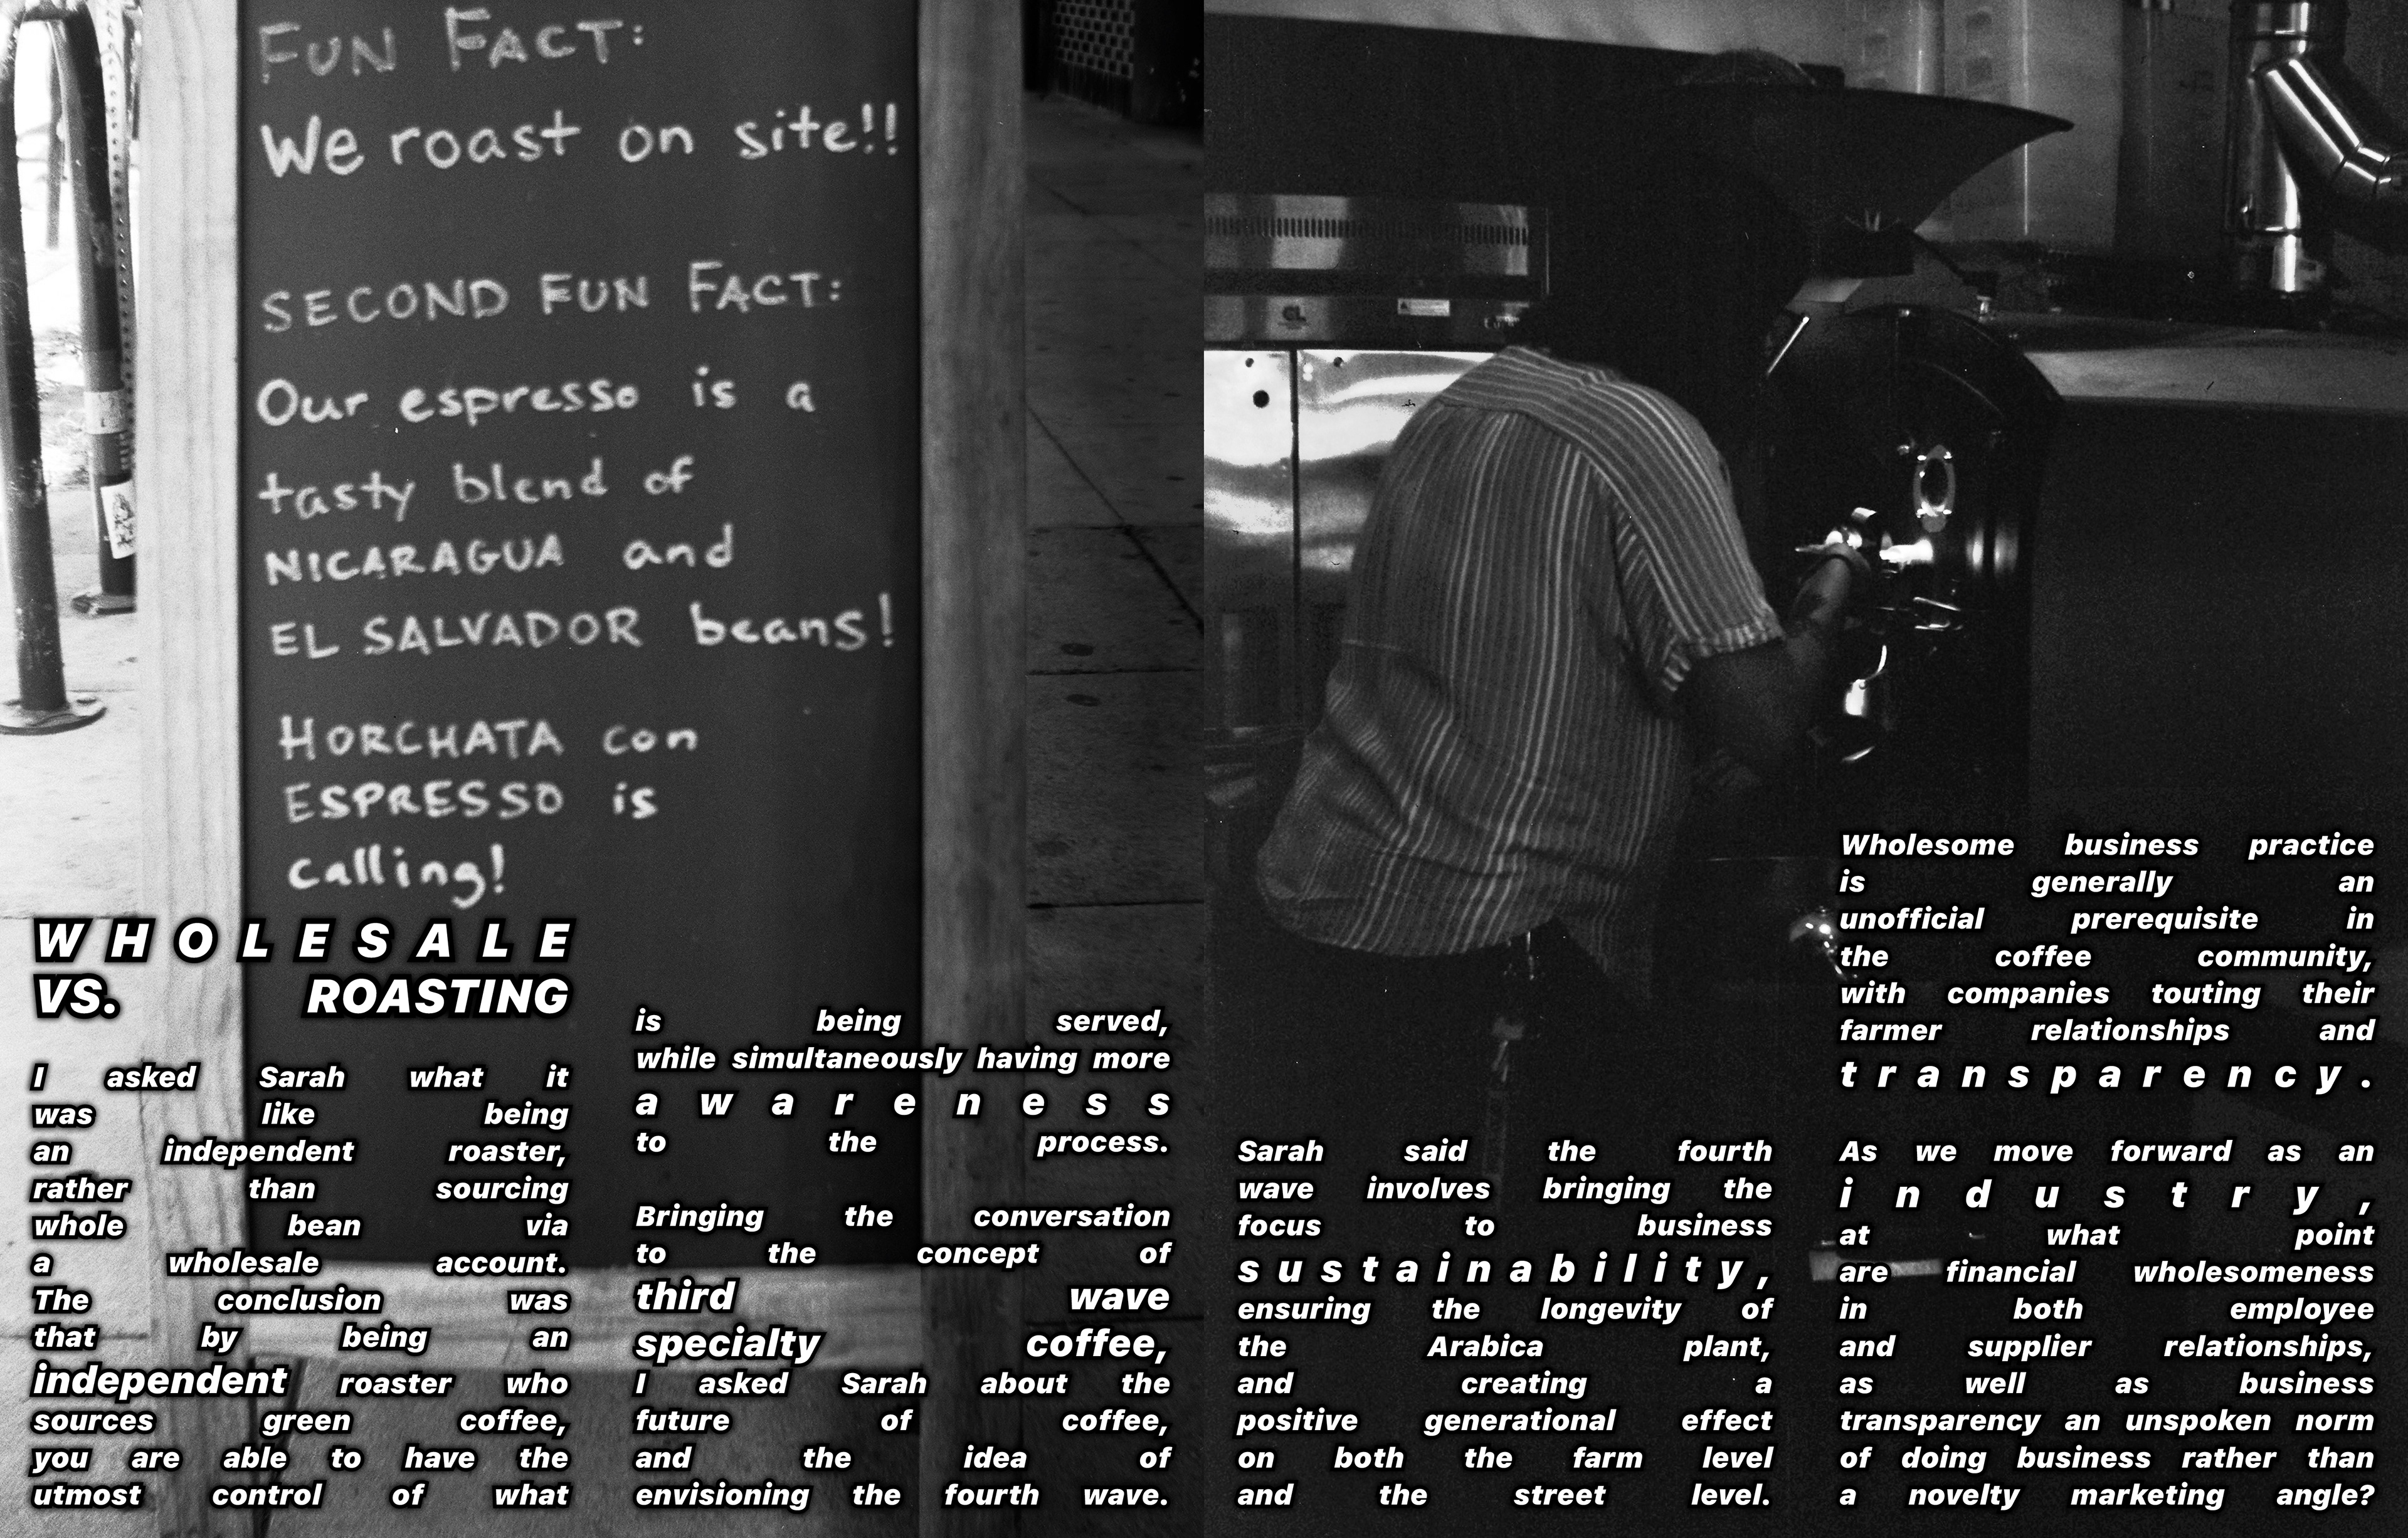 FUN FACT:
We roast on site!!
SECOND FUN FACT:
Our espresso is a
tasty blend of
NICARAGUA and
EL SALVADOR beans!
HORCHATA con
ESPRESSO is
calling!
WHOLESALE
VS. ROASTING
I asked Sarah what it
was like being
an independent roaster,
rather than sourcing
whole bean via
a wholesale account.
The conclusion was
that by being an
independent roaster who
sources green coffee,
you are able to have the
utmost control of what
is being served,
while simultaneously having more
awareness
to the process.
Bringing the conversation
to the concept of
third wave
specialty coffee,
I asked Sarah about the
future of coffee,
and the idea of
envisioning the fourth wave.
CL
Sarah said the fourth
wave involves bringing the
focus to business
sustainability,
ensuring the longevity of
the Arabica plant,
and creating a
positive generational effect
on both the farm level
and the street level.
Wholesome business practice
is generally an
unofficial prerequisite in
the coffee community,
with companies touting their
farmer relationships and
transparency.
As we move forward as an
industry,
at what point
are financial wholesomeness
in both employee
and supplier relationships,
as well as business
transparency an unspoken norm
of doing business rather than
a novelty marketing angle?